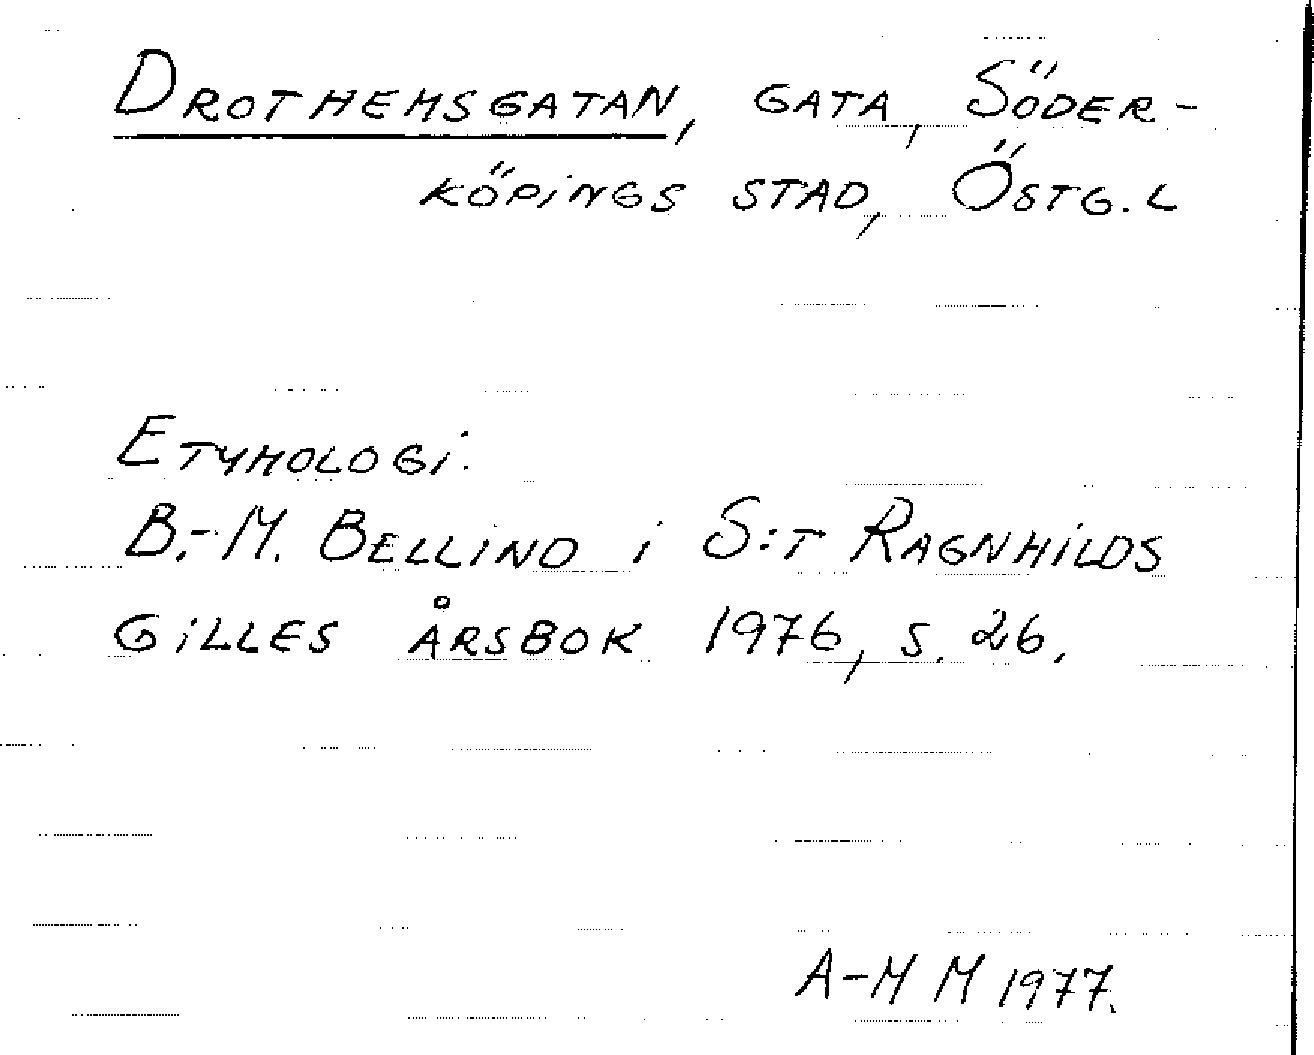 DROTHEMSGATAN, GATA, SÖDER-
KÖPINGS STAD, ÖSTG. L
ETYMOLOGI:
B.-M. BELLIND i S:T RAGNHILDS
GILLES ÅRSBOK 1976, S. 26.
A-M M 1977.